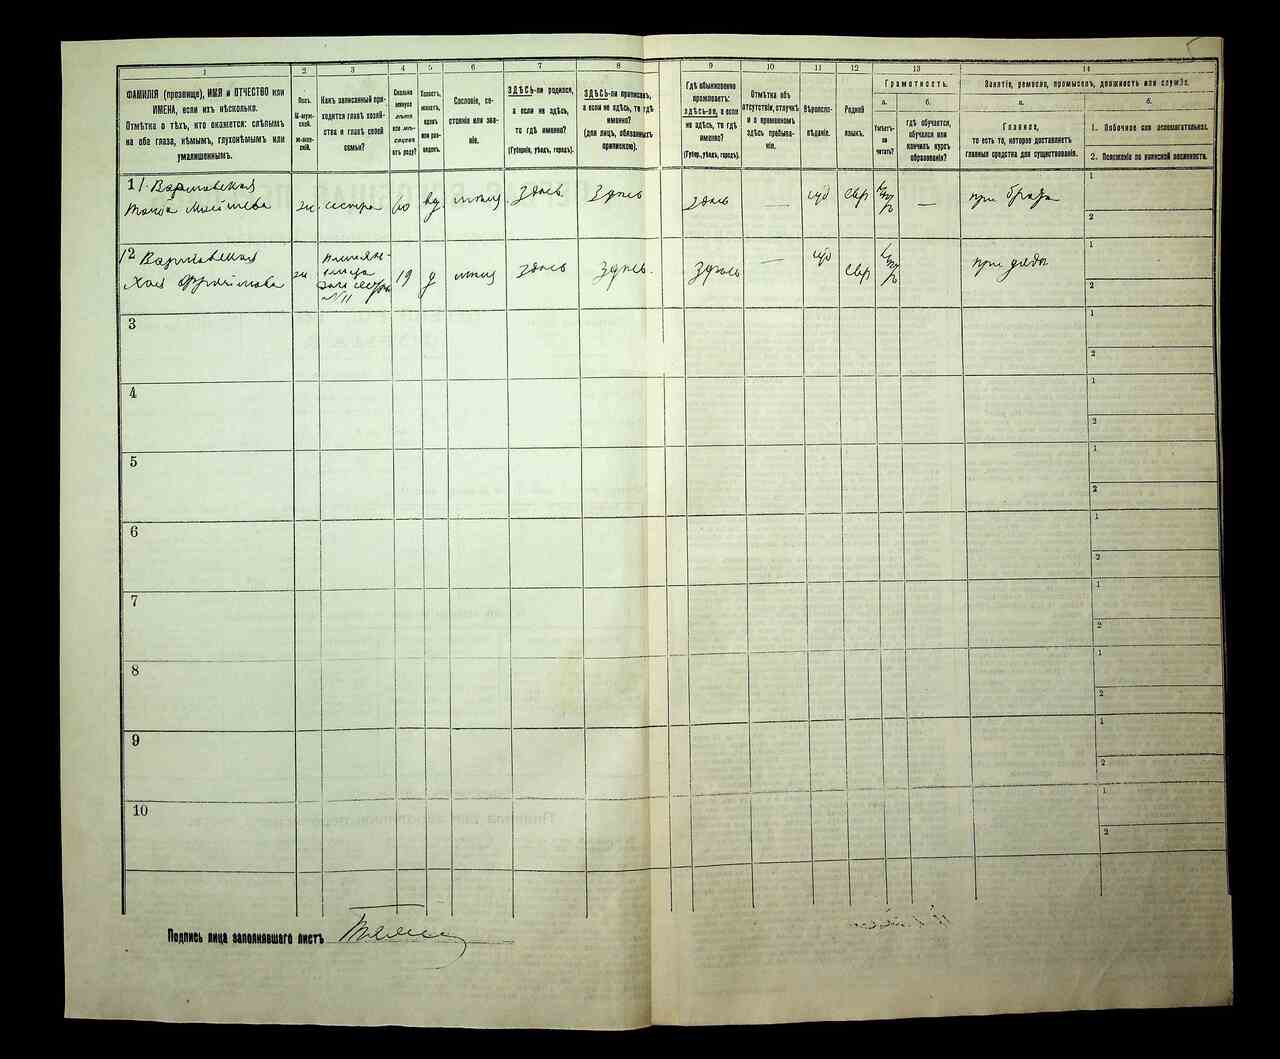 1
2
3
4
5
6
7
8
9
10
11
12
13
14
ФАМИЛІЯ (прозвище), ИМЯ и ОТЧЕСТВО или
ИМЕНА, если ихъ нѣсколько.
Отмѣтка о тѣхъ, кто окажется: слѣпымъ
на оба глаза, нѣмымъ, глухонѣмымъ или
умалишеннымъ.
Полъ.
М-муж-
ской.
Ж-жен-
скій.
Какъ записанный при-
ходится главѣ хозяй-
ства и главѣ своей
семьи?
Сколько
минуло
лѣтъ
или мѣ-
сяцевъ
отъ роду?
Холостъ,
женатъ,
вдовъ
или раз-
веденъ.
Сословіе, со-
стояніе или зва-
ніе.
ЗДѢСЬ-ли родился,
а если не здѣсь,
то гдѣ именно?
(Губернія, уѣздъ, городъ).
ЗДѢСЬ-ли приписанъ,
а если не здѣсь, то гдѣ
именно?
(для лицъ, обязанныхъ
припискою).
Гдѣ обыкновенно
проживаетъ:
здѣсь-ли, а если
не здѣсь, то гдѣ
именно?
(Губер., уѣздъ, городъ).
Отмѣтка объ
отсутствіи, отлучкѣ
и о временномъ
здѣсь пребыва-
ніи.
Вѣроиспо-
вѣданіе.
Родной
языкъ.
Грамотность.
а.
Умѣетъ-
ли
читать?
б.
гдѣ обучается,
обучался или
кончилъ курсъ
образованія?
Занятіе, ремесло, промыселъ, должность или служба.
а.
Главное,
то есть то, которое доставляетъ
главныя средства для существованія.
б.
1. Побочное или вспомогательное.
2. Положеніе по воинской повинности.
11. Варшавская
ж. сестра 60 вд здѣсь здѣсь здѣсь — іуд евр — при братѣ
1
2
12 Варшавская
Хая
племян-
ница
ж 19 д здѣсь здѣсь. здѣсь — іуд евр при дядѣ
№11
1
2
3
1
2
4
1
2
5
1
2
6
1
2
7
1
2
8
1
2
9
1
2
10
1
2
Подпись лица заполнявшаго листъ